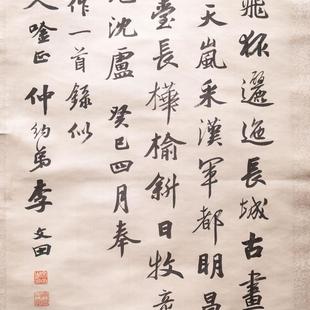 飛狐邐迤長城古畫
天嵐采漢軍都明昌
臺長樺榆斜日牧
沈盧 癸巳四月奉
作一首錄似
人 唫正 仲約弟李文田